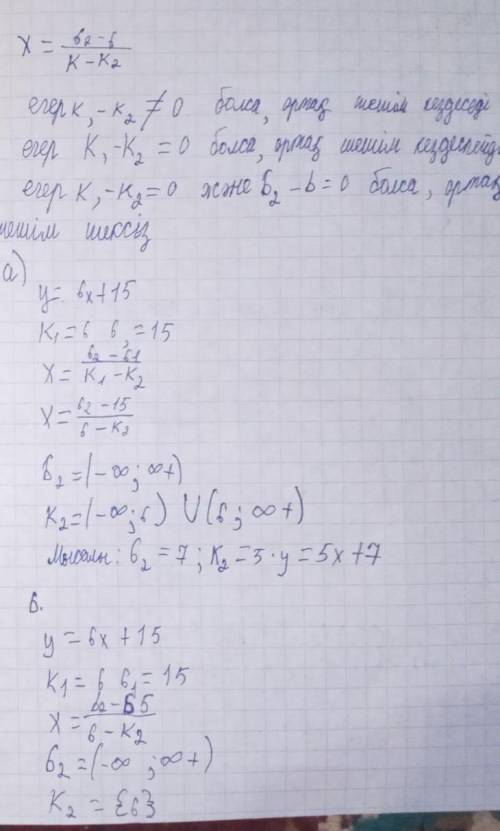 x = (b₂ - b) / (K - K₂)
егер K₁ - K₂ ≠ 0 болса, ортақ шешім кездеседі
егер K₁ - K₂ = 0 болса, ортақ шешім кездеспейді
егер K₁ - K₂ = 0 және b₂ - b = 0 болса, ортақ
шешім шексіз
а)
y = 6x + 15
K₁ = 6 b₁ = 15
x = (b₂ - b1) / (K₁ - K₂)
x = (b₂ - 15) / (6 - K₂)
b₂ = (-∞; ∞+)
K₂ = (-∞; 6) ∪ (6; ∞+)
Мысалы: b₂ = 7; K₂ = 5. y = 5x + 7
б.
y = 6x + 15
K1 = 6 b₁ = 15
x = (b₂ - 65) / (6 - K₂)
b₂ = (-∞; ∞+)
K₂ = {6}